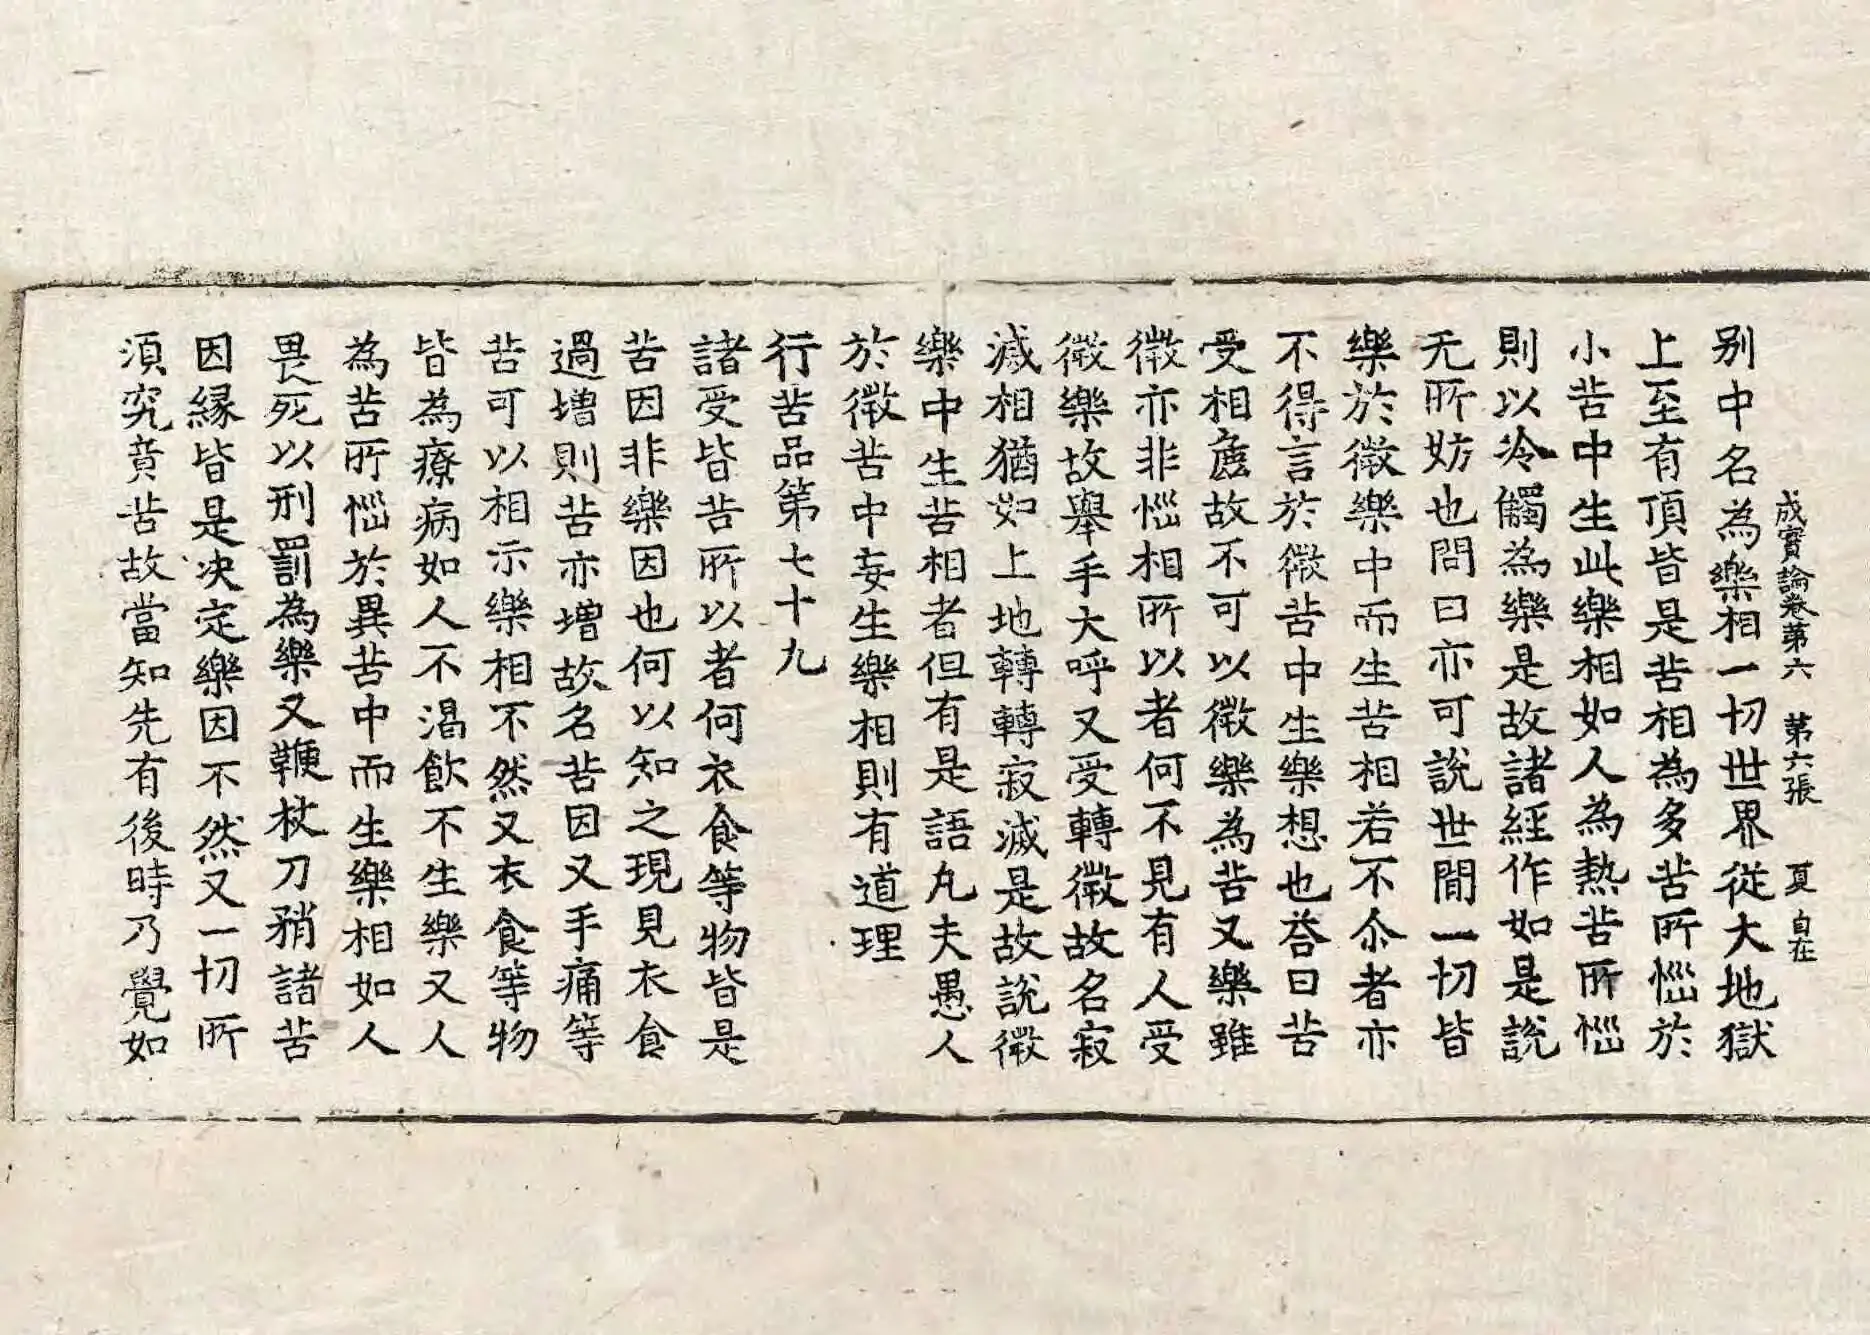 成實論卷第六　第六張　夏　自在
别中名為樂相一切世界從大地獄
上至有頂皆是苦相為多苦所惱於
小苦中生此樂相如人為熱苦所惱
則以冷觸為樂是故諸經作如是說
无所妨也問曰亦可說世間一切皆
樂於微樂中而生苦相若不尒者亦
不得言於微苦中生樂想也荅曰苦
受相麁故不可以微樂為苦又樂雖
微亦非惱相所以者何不見有人受
微樂故舉手大呼又受轉微故名寂
滅相猶如上地轉轉寂滅是故說微
樂中生苦相者但有是語凡夫愚人
於微苦中妄生樂相則有道理
行苦品第七十九
諸受皆苦所以者何衣食等物皆是
苦因非樂因也何以知之現見衣食
過增則苦亦增故名苦因又手痛等
苦可以相示樂相不然又衣食等物
皆為療病如人不渴飲不生樂又人
為苦所惱於異苦中而生樂相如人
畏死以刑罰為樂又鞭杖刀矟諸苦
因緣皆是决定樂因不然又一切所
須究竟苦故當知先有後時乃覺如